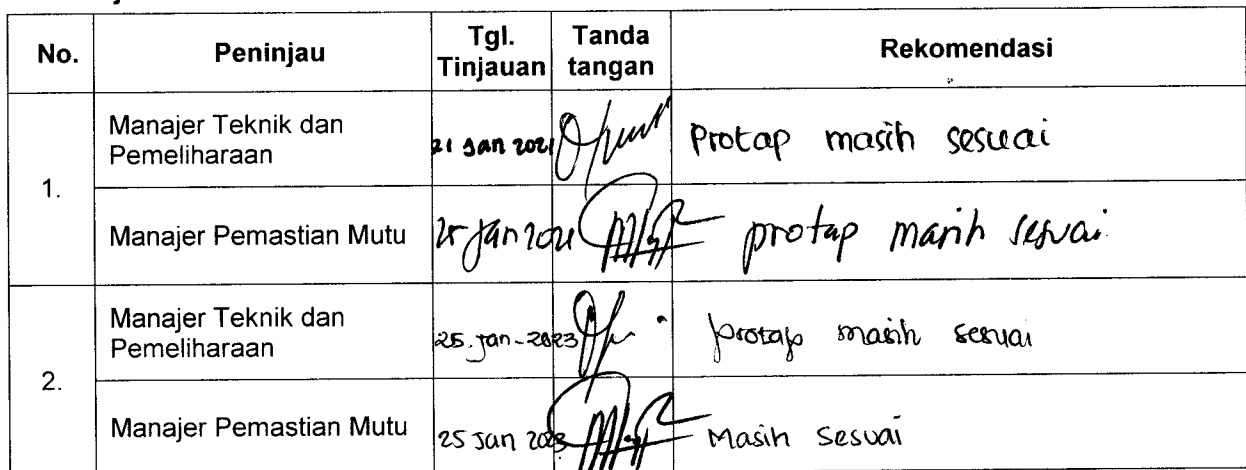 No. Peninjau Tgl. Tinjauan Tanda tangan Rekomendasi
1.
Manajer Teknik dan Pemeliharaan 21 Jan 2021 Protap masih sesuai
Manajer Pemastian Mutu Jan 2021 protap masih sesuai
2.
Manajer Teknik dan Pemeliharaan 25. Jan-2023 protap masih sesuai
Manajer Pemastian Mutu 25 Jan 2023 Masih sesuai